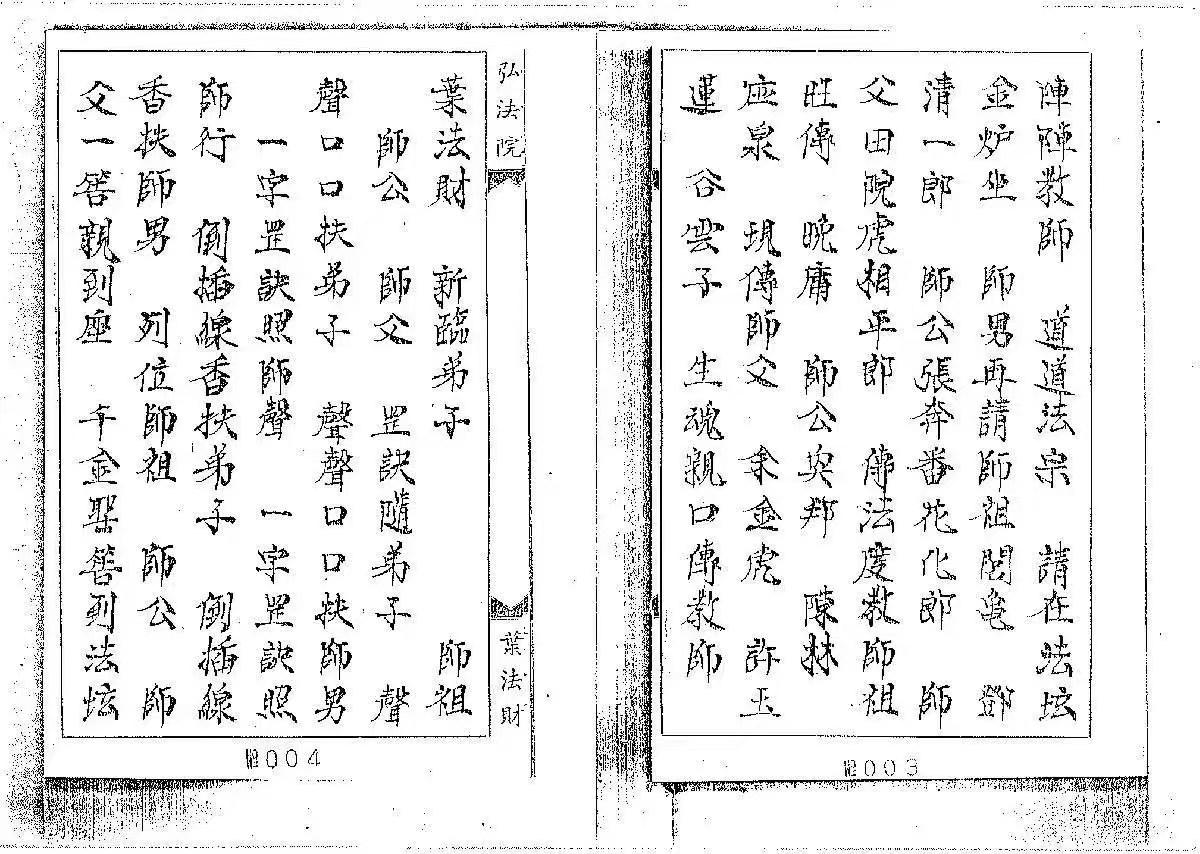 陣陣教師 道道法宗 請在法坛
金炉坐 師男再請師祖閭亀 鄧
清一郎 師公張奔番花化郎 師
父田院虎相平郎 傳法度教師祖
旺傳 晚庸 師公 邦 陳林
座泉 現傳師父 余金虎 許玉
蓮 谷雲子 生魂親口傳教師
№003
弘法院
葉法財
葉法財 新臨弟子 師祖
師公 師父 罡訣隨弟子 聲
聲口口扶弟子 聲聲口口扶師男
一字罡訣照師聲 一字罡訣照
師行 倒插線香扶弟子 倒插線
香扶師男 列位師祖 師公 師
父一筶親到座 千金聖筶到法炫
№004